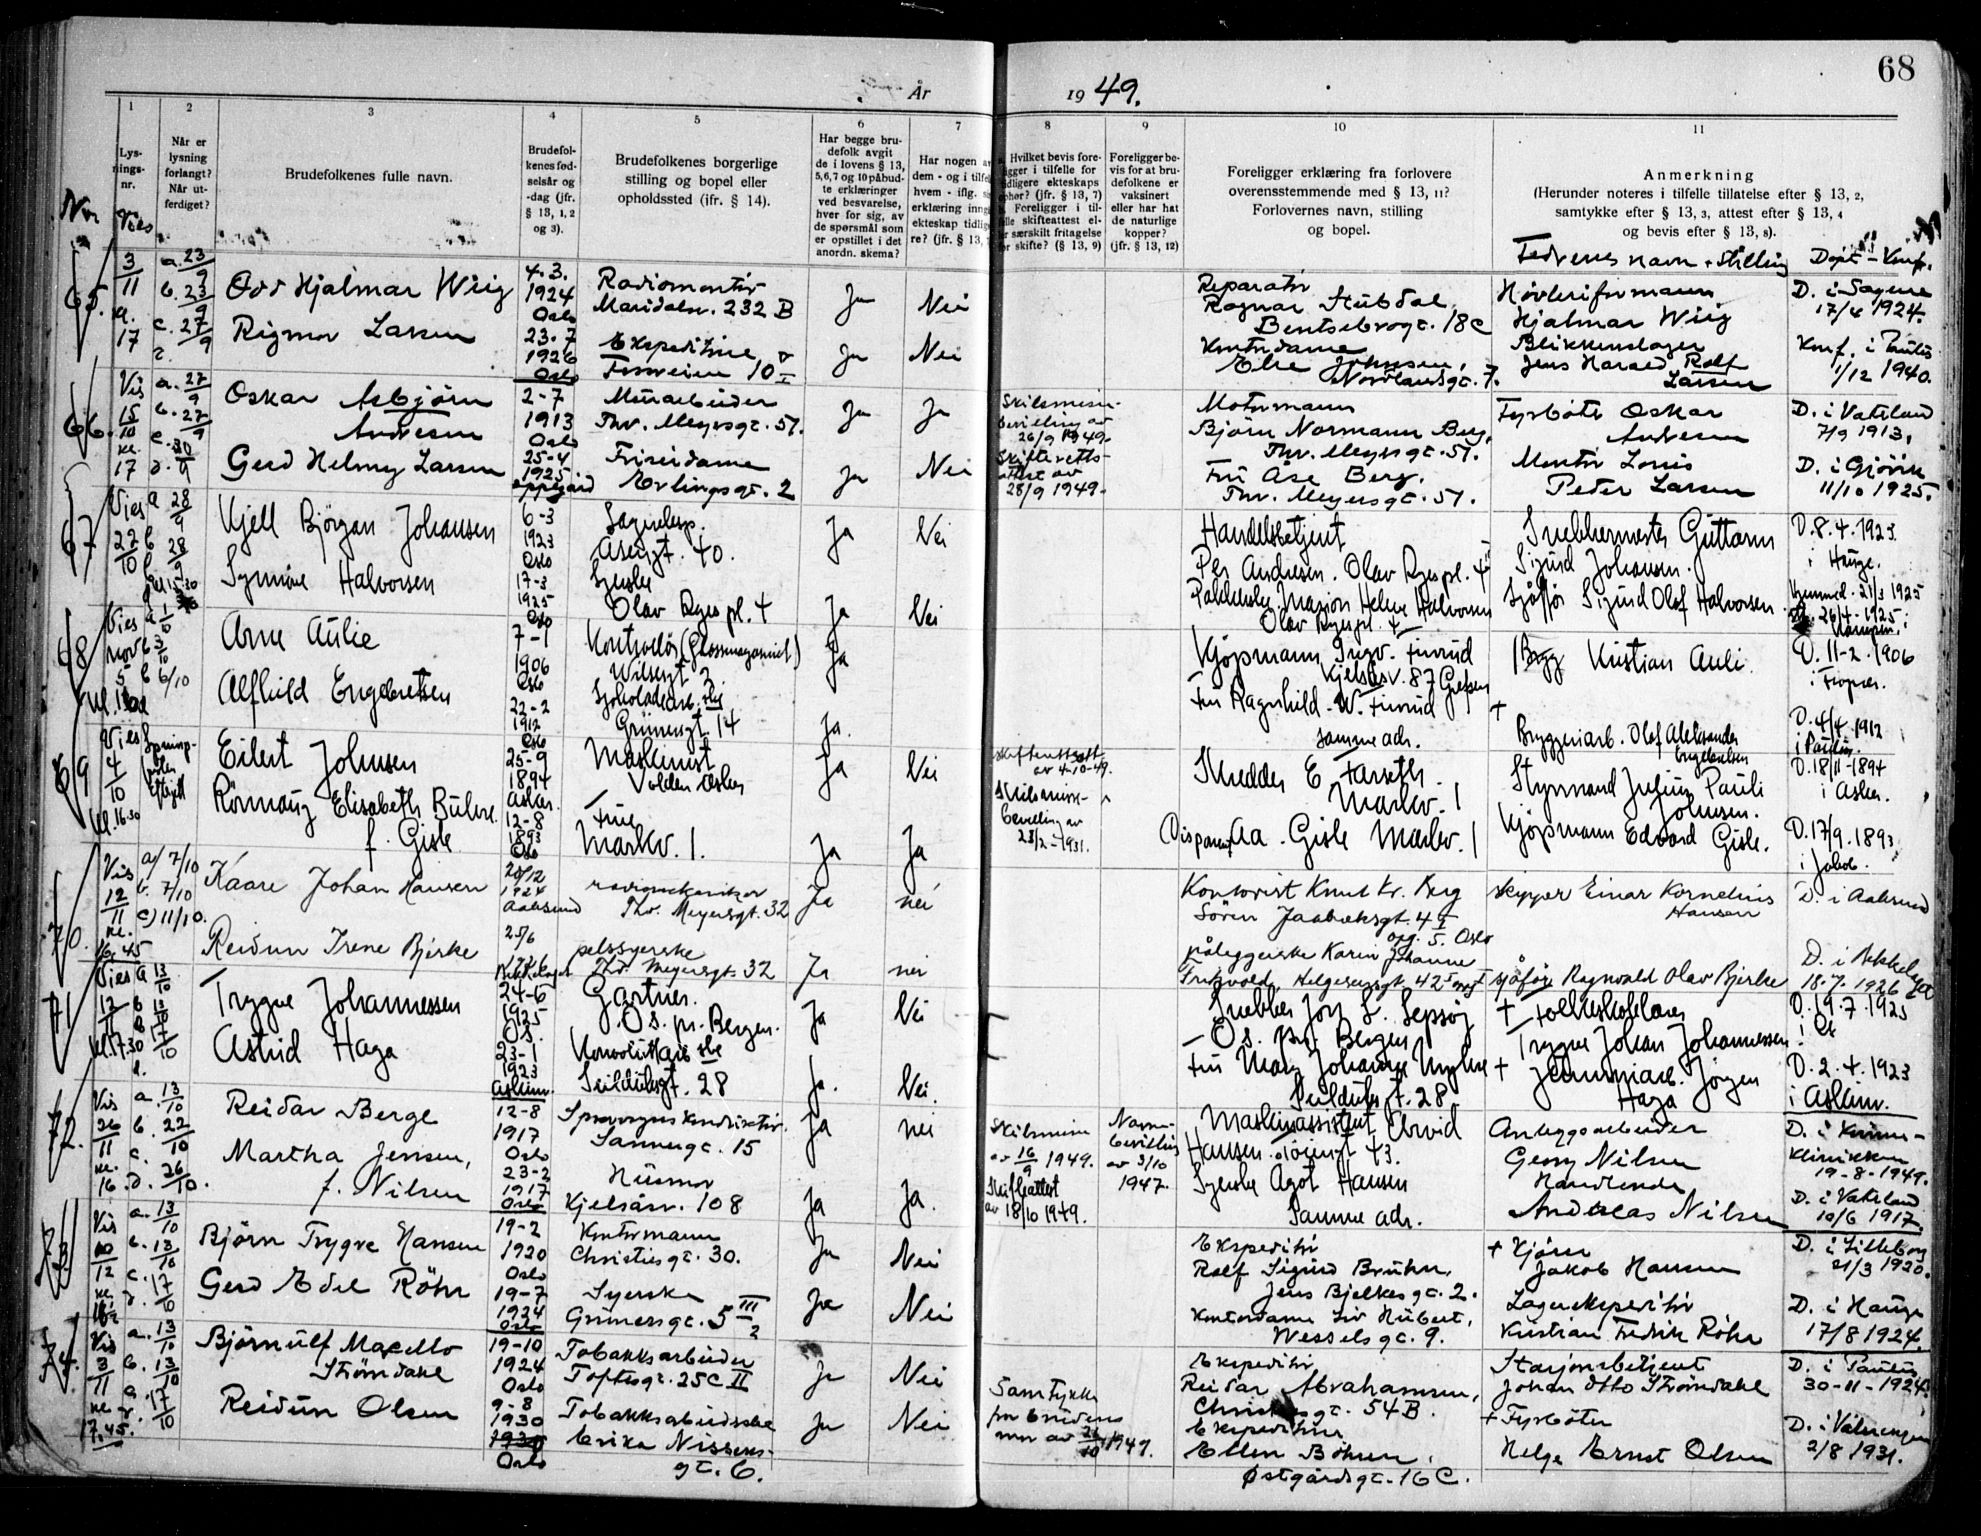 68
År 1949.
1 2 3 4 5 6 7 8 9 10 11
Lys-
nings-
nr.
Når er
lysning
forlangt?
Når ut-
ferdiget?
Brudefolkenes fulle navn.
Brudefol-
kenes fød-
selsår og
-dag (jfr.
§ 13, 1, 2
og 3).
Brudefolkenes borgerlige
stilling og bopel eller
opholdssted (ifr. § 14).
Har begge bru-
defolk avgit
de i lovens § 13,
5, 6, 7 og 10 påbud-
te erklæringer
ved besvarelse,
hver for sig, av
de spørsmål som
er opstillet i det
anordn. skema?
Har nogen av
dem - og i tilfelle
hvem - iflg.
erklæring inngått
ekteskap tidlige-
re? (jfr. § 13,
Hvilket bevis fore-
ligger i tilfelle for
tidligere ekteskaps
ophør? (jfr. § 13, 7)
Foreligger i til-
felle skifteattest el-
ler særskilt fritagelse
for skifte? (§ 13, 9)
Foreligger be-
vis for at bru-
defolkene er
vaksinert
eller har hat
de naturlige
kopper?
(jfr. § 13, 12)
Foreligger erklæring fra forlovere
overensstemmende med § 13, 11?
Forlovernes navn, stilling
og bopel.
Anmerkning
(Herunder noteres i tilfelle tillatelse efter § 13, 2,
samtykke efter § 13, 3, attest efter § 13, 4
og bevis efter § 13, 8).
Fedrenes navn + stilling Døpt - Konf.
65. 3/11 kl. 17
a. 23/9
b. 23/9
c. 27/9
Odd Hjalmar Wiig
4-3.
1924
Oslo
Radiomontør
Maridalsv. 232 B
Ja Nei
Reparatør
Ragnar Stubdal
Bentsebrogt. 18c
Høvleriformann
Hjalmar Wiig
D. i Sagene
17/4 1924.
Rigmor Larsen
23-7
1926
Oslo
Ekspeditrise
10
Ja Nei
Kontordame
Else Johnsen,
Nordlandsgt. 7.
Blikkenslager
Jens Harald Rolf
Larsen
Konf. i Paulus
1/12 1940.
66. Vis 15/10 kl. 17
a. 27/9
b. 27/9
c. 30/9
Oskar Asbjørn
Andresen
2-7
1913
Oslo
Murarbeider
Thv. Meyersgt. 57.
Ja Ja
Skilsmisse-
bevilling av
26/9 1949.
Skifteretts-
attest av
28/9 1949.
Motormann
Bjørn Normann Berg,
Thv. Meyersgt. 57.
Fyrbøter Oskar
Andresen
D. i Vaterland
7/9 1913.
Gerd Helmy Larsen
25-4
1925
Oppegård
Frisørdame
Erlingsgt. 2
Ja Nei
Fru Åse Berg.
Thv. Meyersgt. 57.
Montør Louis
Peder Larsen
D. i Gjøvik
11/10 1925.
67 Vies 22/10
a 28/9
b 28/9
Kjell Bjørgan Johansen
6-3
1923
Oslo
Lagereksp.
Åsengt. 40.
Ja Nei
Handelsbetjent
Per Andresen. Olav Ryes pl. 4
Snekkermester Guttorm
Sigurd Johansen.
D. 8.4.1923
i Hauge.
Synnøve Halvorsen
17-3
1925
Oslo
Syerske
Olav Ryes pl. 4
Ja Nei
Marion Helene Halvorsen
Olav Ryes pl. 4
Sjåfør Sigurd Olaf Halvorsen
Hjemmed. 21/3 1925
26/4-1925 i
68 Vies nov 5
a 1/10
b 3/10
b 6/10
Arne Aulie
7-1
1906
Oslo
Kontrollør
Wilsesgt 2
Ja
Kjøpmann Ingv. Furud
Kjelsåsv. 87 Grefsen
Kristian Auli.
D. 11-2-1906
i Frogner.
Alfhild Engebretsen
22-2
1912
Oslo
Sjokoladearb.ske
Grünersgt. 14
Ja.
Fru Ragnhild W. Furud
samme adr.
+ Bryggeriarb. Olaf Aleksander
Engebretsen
D. 4/4-1912
i Paulus.
69 Vies 4/10 kl. 16.30
Eilert Johnsen
25-9
1894
Asker.
Maskinist
Volden Asker
Ja Nei
Skifterettsatt.
av 4-10-49.
Skredder E. Farseth.
Markv. 1
Styrmand Julius Pauli
Johnsen.
D. 18/11-1894
i Asker.
Rørmaug Elisabeth Bulve
f. Gisle
12-8
1893
Oslo
Frue
Markv. 1.
Ja Ja
Skilsmisse-
bevilling av
23/2-1931.
Disponent Aa. Gisle Markv. 1
Kjøpmann Edvard Gisle.
D. 17/9.1893
i Jakob.
70. Vies 12/11 kl. 16,45
a/ 7/10
b. 7/10
c) 11/10.
Kaare Johan Hansen
20/12
1924
Aalesund
radiomekaniker
Thv. Meyersgt. 32
Ja nei
Kontorist Knut Kr. Berg
Søren Jaabæksgt. 4 I
opg. 5. Oslo
skipper Einar Kornelius
Hansen
D. i Aalesund
Reidun Irene Bjerke
25/6
1926
Bekkelaget
pelssyerske
Thv. Meyersgt. 32
Ja nei
påleggerske Karin Johanne
Helgesensgt. 42
sjåfør Ragnvald Olav Bjerke
D. i Bekkelaget
18.7.1926
71 Vies 12/11 kl. 17.30
a 13/10
b 13/10
17/10
Trygve Johannessen
24-6
1925
Os.
Gartner.
Os. pr. Bergen.
Ja Nei
Snekker Jørg L. Sepsøy
Os. pr. Bergen
+ Folkeskolelærer
Trygve Johan Johannessen
D. 19.7.1925
i Os
Astrid Haga
23-1
1923
Askim
Konvoluttarb.ske
Seilduksgt. 28
Ja. Nei.
Fru Mary Johanne Myhre
Seilduksgt. 28.
+ Jernvarearb. Jørgen
Haga
D. 2.4.1923
i Askim.
72. Vis 26/11 kl. 16.
a. 13/10
b. 22/10
c.
d. 26/10.
Reidar Berge
12-8
1917
Oslo
Sporvognskonduktør
Sannergt. 15
Ja nei
Skilsmisse
av 16/9 1949.
Navne-
bevilling
av 3/10
1947.
Maskinassistent Arvid
Hansen. 43.
Anleggsarbeider
Georg Nilsen
D. i Kvinne-
klinikken
19-8-1949.
Martha Jensen,
f. Nilsen
23-2
1917
Oslo
Husmor
Kjelsåsv. 108
Ja Ja.
Skifteattest
av 18/10 1949.
Syerske Agot Hansen
Samme adr.
Handlende
Andreas Nilsen
D. i Vaterland
10/6 1917.
73 Vis 10/12
a. 13/10
b. 13/10
c. 17/10
d.
Bjørn Trygve Hansen
19-2
1920
Oslo
Kontormann
Christiesgt. 30.
Ja Nei
Ekspeditør
Rolf Sigurd Bruhn,
Jens Bjelkesgt. 2.
+ Kjører
Jakob Hansen
D. i Lilleborg
21/3 1920.
Gerd Edel Röhr
19-7
1924
Oslo
Syerske
Grünersgt. 5 III/2
Ja Nei
Kontordame Liv Hubert,
Wesselsgt. 9.
Lagerekspeditør
Kristian Fredrik Röhr
D. i Hauge
17/8 1924.
74. Vis 3/11 kl 17.45.
a. 13/10
b. 13/10
17/10
Bjørnulf Marello
Strøndahl
19-10
1924
Oslo
Tobakksarbeider
Toftesgt. 25C II
Ja Nei
Samtykke
fra brudens
mor av 21/10 1949.
Ekspeditør
Reidar Abrahamsen,
54 B.
Stasjonsbetjent
Johan Otto Strøndahl
D. i Paulus
30-11-1924.
Reidun Olsen
9-8
1930
1930
Oslo
Tobakksarbeiderske
Erika Nissens-
gt. 6.
Ja Nei
Ekspeditrise
Ellen Bøhren,
Østgårdsgt. 16 C.
+ Fyrbøter
Helge Ernst Olsen
D. i Vålerengen
2/8 1931.